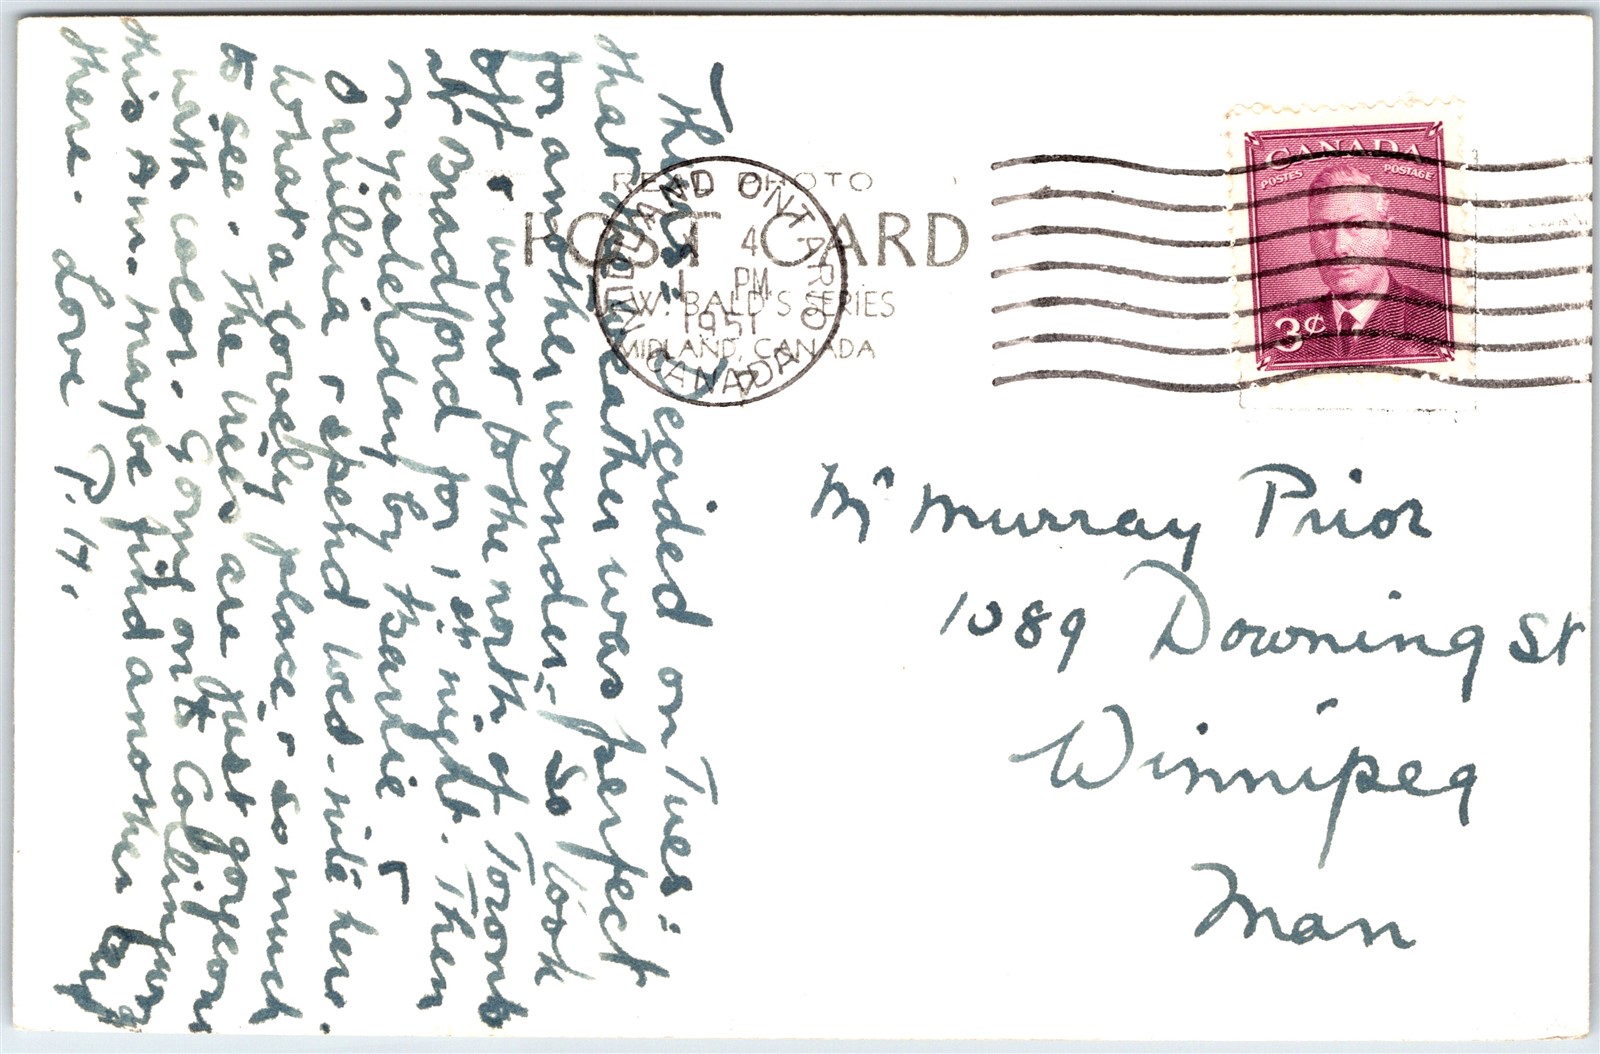 Thurs: Decided on Tues:
that weather was perfect
for another wander – so took
off & went to the north of Toronto
at Bradford for 1st night. Then
on yesterday by Barrie &
Orillia & spend wed – nite here.
What a lovely place & so much
to see. The trees are just gorgeous
with color. Going on to Collingwood
this A.M. maybe find another
there. Love P. H.
REAL PHOTO
POST CARD
J.W. BALD'S SERIES
MIDLAND, CANADA
MIDLAND ONTARIO
4
PM
1951
CANADA
CANADA
POSTES POSTAGE
3¢
Mr Murray Prior
1089 Downing St
Winnipeg
Man